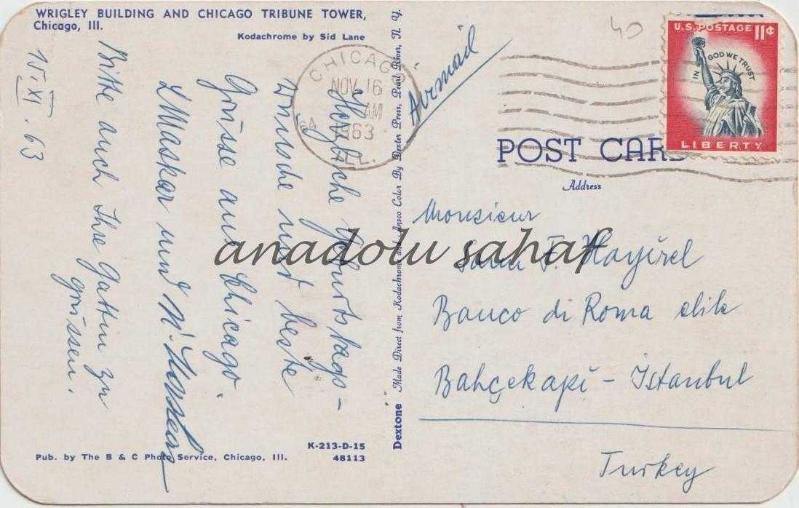 WRIGLEY BUILDING AND CHICAGO TRIBUNE TOWER,
Chicago, Ill.
Kodachrome by Sid Lane
15. XI. 63
Herzliche Geburtstags-
wünsche und beste
Grüsse aus Chicago.
und
Bitte auch Ihre Gattin zu
grüssen.
K-213-D-15
48113
Pub. by The B & C Photo Service, Chicago, Ill.
Dextone Made Direct from Kodachrome and Ansco Color By Dexter Press, Pearl River, N. Y.
CHICAGO
NOV 16
AM
1963
ILL.
40
Airmail
U.S. POSTAGE 11¢
IN GOD WE TRUST
LIBERTY
POST CARD
Address
Monsieur
F. Hayirel
Banco di Roma elile
Bahçekapi - Istanbul
Turkey
anadolu sahaf